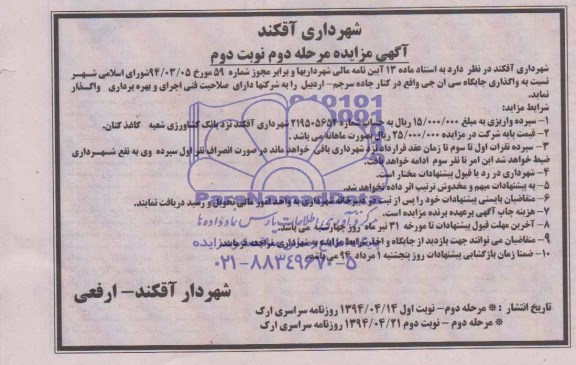 شهرداری آقکند
آگهی مزایده مرحله دوم نوبت دوم
شهرداری آقکند در نظر دارد به استناد ماده ۱۳ آیین نامه مالی شهرداریها و برابر مجوز شماره ۵۹ مورخ ۹۴/۰۳/۰۵ شورای اسلامی شهر
نسبت به واگذاری جایگاه سی ان جی واقع در کنار جاده سرچم- اردبیل را به شرکتها دارای صلاحیت فنی اجرای و بهره برداری واگذار
نماید.
شرایط مزاید:
۱- سپرده واریزی به مبلغ ۱۵/۰۰۰/۰۰۰ ریال به حساب شماره ۲۱۹۵۰۵۶۵۲ شهرداری آقکند نزد بانک کشاورزی شعبه کاغذ کنان.
۲- قیمت پایه شرکت در مزایده ۲۵/۰۰۰/۰۰۰ ریال بصورت ماهانه می باشد.
۳- سپرده نفرات اول تا سوم تا زمان عقد قرارداد نزد شهرداری باقی خواهد ماند در صورت انصراف نفر اول سپرده وی به نفع شهرداری
ضبط خواهد شد این امر تا نفر سوم ادامه خواهد یافت.
۴- شهرداری در رد یا قبول پیشنهادات مختار است.
۵- به پیشنهادات مبهم و مخدوش ترتیب اثر داده نخواهد شد.
۶- متقاضیان بایستی پیشنهادات خود را پس از ثبت در دبیرخانه شهرداری به واحد امور مالی تحویل و رسید دریافت نمایند.
۷- هزینه چاپ آگهی برعهده برنده مزایده است.
۸- آخرین مهلت قبول پیشنهادات تا مورخه ۳۱ تیر ماه روز چهارشنبه می باشد.
۹- متقاضیان می توانند جهت بازدید از جایگاه و اخذ شرایط مزایده به شهرداری مراجعه فرمایند.
۱۰- ضمنا زمان بازگشایی پیشنهادات روز پنجشنبه ۱ مرداد ۹۴ می باشد.
شهردار آقکند- ارفعی
تاریخ انتشار : * مرحله دوم- نوبت اول ۱۳۹۴/۰۴/۱۴ روزنامه سراسری ارک
* مرحله دوم - نوبت دوم ۱۳۹۴/۰۴/۲۱ روزنامه سراسری ارک
ParsNamadData
۰۲۱-۸۸۳۴۹۶۷۰-۵